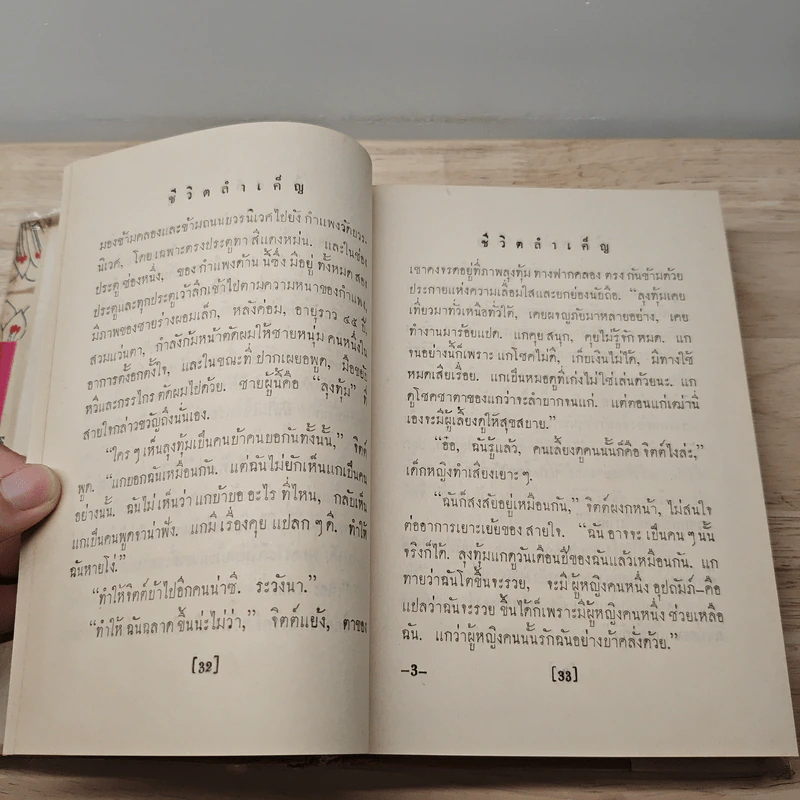 ชีวิตลำเค็ญ
มองข้ามคลองและข้ามถนนบวรนิเวศไปยัง กำแพงวัดบวร-
นิเวศ, โดยเฉพาะตรงประตูทา สีแดงหม่น. และในช่อง
ประตู ช่องหนึ่ง, ของ กำแพงด้าน นี้ซึ่ง มีอยู่ ทั้งหมด สอง
ประตูและทุกประตูเว้าลึกเข้าไปตามความหนาของกำแพง,
มีภาพของชายร่างผอมเล็ก, หลังค่อม, อายุราว ๔๕ ปี,
สวมแว่นตา, กำลังก้มหน้าตัดผมให้ชายหนุ่ม คนหนึ่งใน
อาการตั้งอกตั้งใจ, และในขณะที่ ปากเผยอพูด, มือขยับ
หวีและกรรไกร ตัดผมไปด้วย. ชายผู้นี้คือ “ลุงทุ้ม” ที่
สายใจกล่าวขวัญถึงนั่นเอง.
“ใคร ๆ เห็นลุงทุ้มเป็นคนบ้าคนบอกันทั้งนั้น,” จิตต์
พูด. “แกบอกฉันเหมือนกัน. แต่ฉันไม่ยักเห็นแกเป็นคน
อย่างนั้น. ฉันไม่ เห็นว่า แกบ้าบอ อะไร ที่ไหน, กลับเห็น
แกเป็นคนพูดจาน่าฟัง. แกมี เรื่องคุย แปลก ๆ ดี. ทำให้
ฉันหายโง่.”
“ทำให้จิตต์บ้าไปอีกคนน่าซี. ระวังนา.”
“ทำให้ ฉันฉลาด ขึ้นน่ะไม่ว่า,” จิตต์แย้ง, ตาของ
[32]
ชีวิตลำเค็ญ
เขาคงจรดอยู่ที่ภาพลุงทุ้ม ทางฟากคลอง ตรง กันข้ามด้วย
ประกายแห่งความเลื่อมใสและยกย่องนับถือ. “ลุงทุ้มเคย
เที่ยวมาทั่วเหนือทั่วใต้, เคยผจญภัยมาหลายอย่าง, เคย
ทำงานมาร้อยแปด. แกคุย สนุก, คุยไม่รู้จัก หมด. แก
จนอย่างนี้ก็เพราะ แกโชคไม่ดี, เก็บเงินไม่ได้, มีทางใช้
หมดเสียเรื่อย. แกเป็นหมอดูที่เก่งไม่ใช่เล่นด้วยนะ. แก
ดูโชคชาตาของแกว่าจะลำบากจนแก่. แต่ตอนแก่เฒ่านี่
เองจะมีผู้เลี้ยงดูให้สุขสบาย.”
“อ๋อ, ฉันรู้แล้ว, คนเลี้ยงดูคนนั้นก็คือ จิตต์ไงล่ะ,”
เด็กหญิงทำเสียงเยาะ ๆ.
“ฉันก็สงสัยอยู่เหมือนกัน,” จิตต์ผงกหน้า, ไม่สนใจ
ต่ออาการเยาะเย้ยของ สายใจ. “ฉัน อาจจะ เป็นคน ๆ นั้น
จริงก็ได้. ลุงทุ้มแกดูวันเดือนปีของฉันแล้วเหมือนกัน. แก
ทายว่าฉันโตขึ้นจะรวย, จะมี ผู้หญิงคนหนึ่ง อุปถัมภ์-คือ
แปลว่าฉันจะรวย ขึ้นได้ก็เพราะมีผู้หญิงคนหนึ่ง ช่วยเหลือ
ฉัน. แกว่าผู้หญิงคนนั้นรักฉันอย่างบ้าคลั่งด้วย.”
–3–
[33]